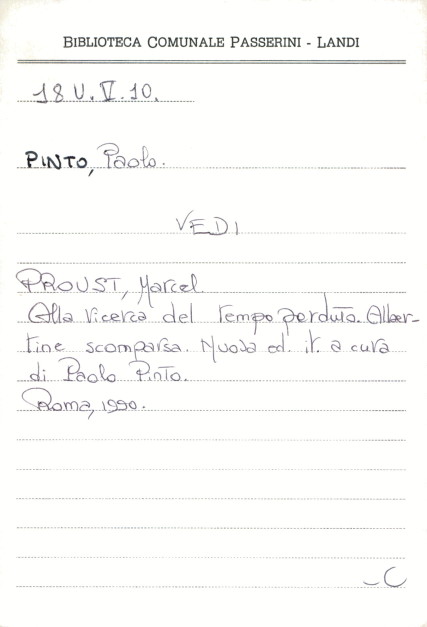 BIBLIOTECA COMUNALE PASSERINI - LANDI
18 U. VI. 10.
PINTO, Paolo.
VEDI
PROUST, Marcel.
Alla ricerca del Tempo perduto. Alber-
tine scomparsa. Nuova ed. it. a cura
di Paolo Pinto.
Roma, 1990.